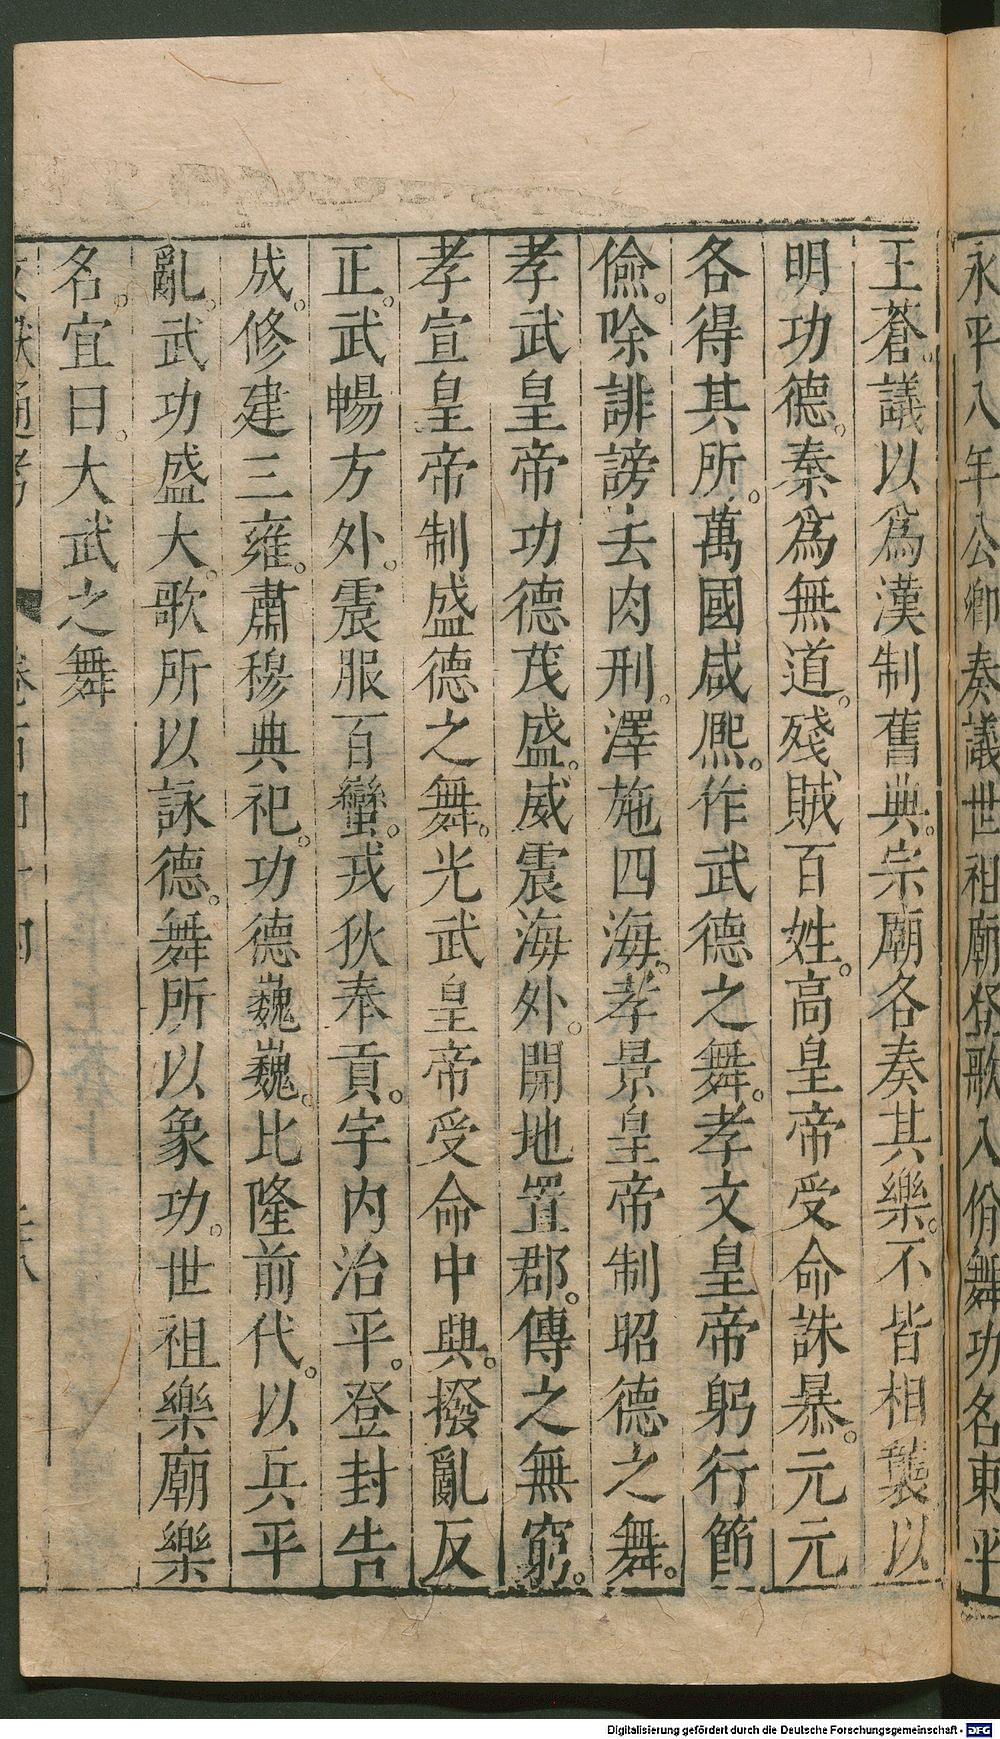 永平八年公卿奏議世祖廟登歌八佾舞功名東平
王蒼。議以爲漢制舊典。宗廟各奏其樂。不皆相襲以
明功德。秦爲無道。殘賊百姓。高皇帝受命誅暴。元元
各得其所。萬國咸熈。作武德之舞。孝文皇帝躬行節
儉。除誹謗去肉刑。澤施四海。孝景皇帝制昭德之舞。
孝武皇帝功德茂盛。威震海外。開地置郡。傳之無窮。
孝宣皇帝制盛德之舞。光武皇帝受命中興。撥亂反
正。武暢方外。震服百蠻。戎狄奉貢。宇内治平。登封告
成。修建三雍。肅穆典祀。功德巍巍。比隆前代。以兵平
亂。武功盛大。歌所以詠德。舞所以象功。世祖樂廟樂
名。宜曰。大武之舞
文獻通考 卷百四十四 三十八
Digitalisierung gefördert durch die Deutsche Forschungsgemeinschaft - DFG